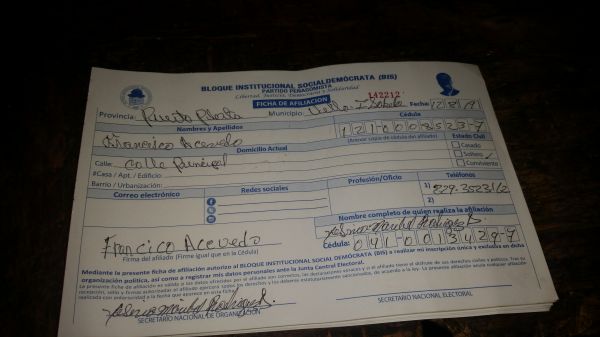 BLOQUE INSTITUCIONAL SOCIALDEMÓCRATA (BIS)
PARTIDO PEÑAGOMISTA
Libertad, Justicia, Democracia y Solidaridad
142212
FICHA DE AFILIACIÓN
Provincia: Puerto Plata Municipio: Villa Isabela Fecha: 12 8 19
Nombres y Apellidos Cédula
Francisco Acevedo
(Anexar copia de cédula del afiliado)
Domicilio Actual Estado Civil
Calle: Calle Principal Casado
#Casa / Apt. / Edificio: Soltero
Barrio / Urbanización: Conviviente
Correo electrónico Redes sociales Profesión/Oficio Teléfonos
1) 829-3523162
2)
Nombre completo de quien realiza la afiliación
Francico Acevedo
Firma del afiliado (Firme igual que en la Cédula)
Cédula: 0 4 1 0 0 1 3 4 2 9 7
Mediante la presente ficha de afiliación autorizo al BLOQUE INSTITUCIONAL SOCIAL DEMÓCRATA (BIS) a realizar mi inscripción única y exclusiva en dicha
organización política, así como a registrar mis datos personales ante la Junta Central Electoral.
SECRETARIO NACIONAL DE ORGANIZACIÓN SECRETARIO NACIONAL ELECTORAL